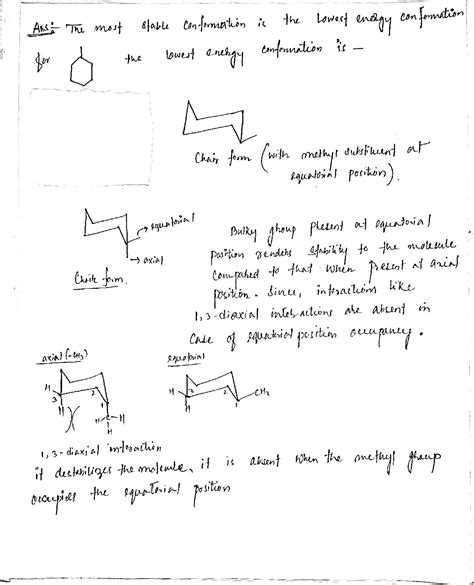 Ans:- The most stable conformation is the lowest energy conformation
for the lowest energy conformation is –
Chair form (with methyl substituent at
equatorial position).
→ equatorial
→ axial
Chair form.
Bulky group present at equatorial
position renders stability to the molecule
compared to that when present at axial
position. Since, interactions like
1,3-diaxial interactions are absent in
case of equatorial position occupancy.
axial (-CH3)
equatorial
H 3 2 1
H
H C H
H
H 3 2 1 CH3
H
1,3-diaxial interaction
it destabilizes the molecule, it is absent when the methyl group
occupies the equatorial position